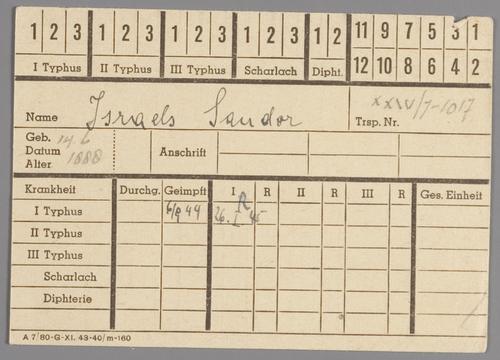 1 2 3 1 2 3 1 2 3 1 2 3 1 2 11 9 7 5 3 1
I Typhus II Typhus III Typhus Scharlach Dipht. 12 10 8 6 4 2
Name Israels Sandor XXIV/7-1017
Trsp. Nr.
Geb. 14.6
Datum 1888 Anschrift
Alter
Krankheit Durchg. Geimpft I R II R III R Ges. Einheit
R
I Typhus 6/9 44 26. I 45
II Typhus
III Typhus
Scharlach
Diphterie
A 7/80-G-XI. 43-40/m-160